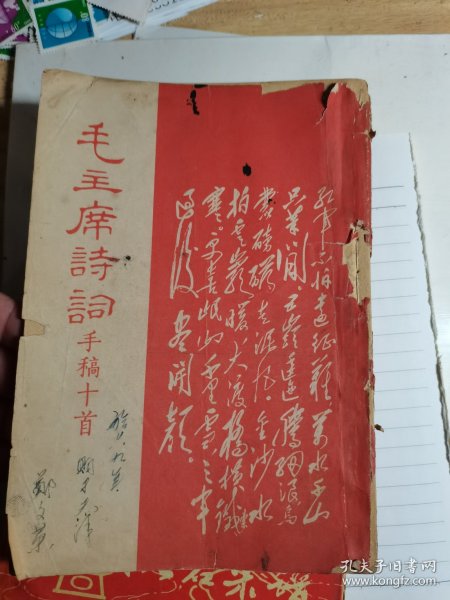 毛主席詩詞
手稿十首
紅軍不怕遠征難萬水千山
只等闲五嶺逶迤騰细浪烏
蒙磅礴走泥丸金沙水
拍雲崖暖大渡橋橫鐵索
寒更喜岷山千里雪三军
过後尽开颜
孔夫子旧书网
www.kongfz.com